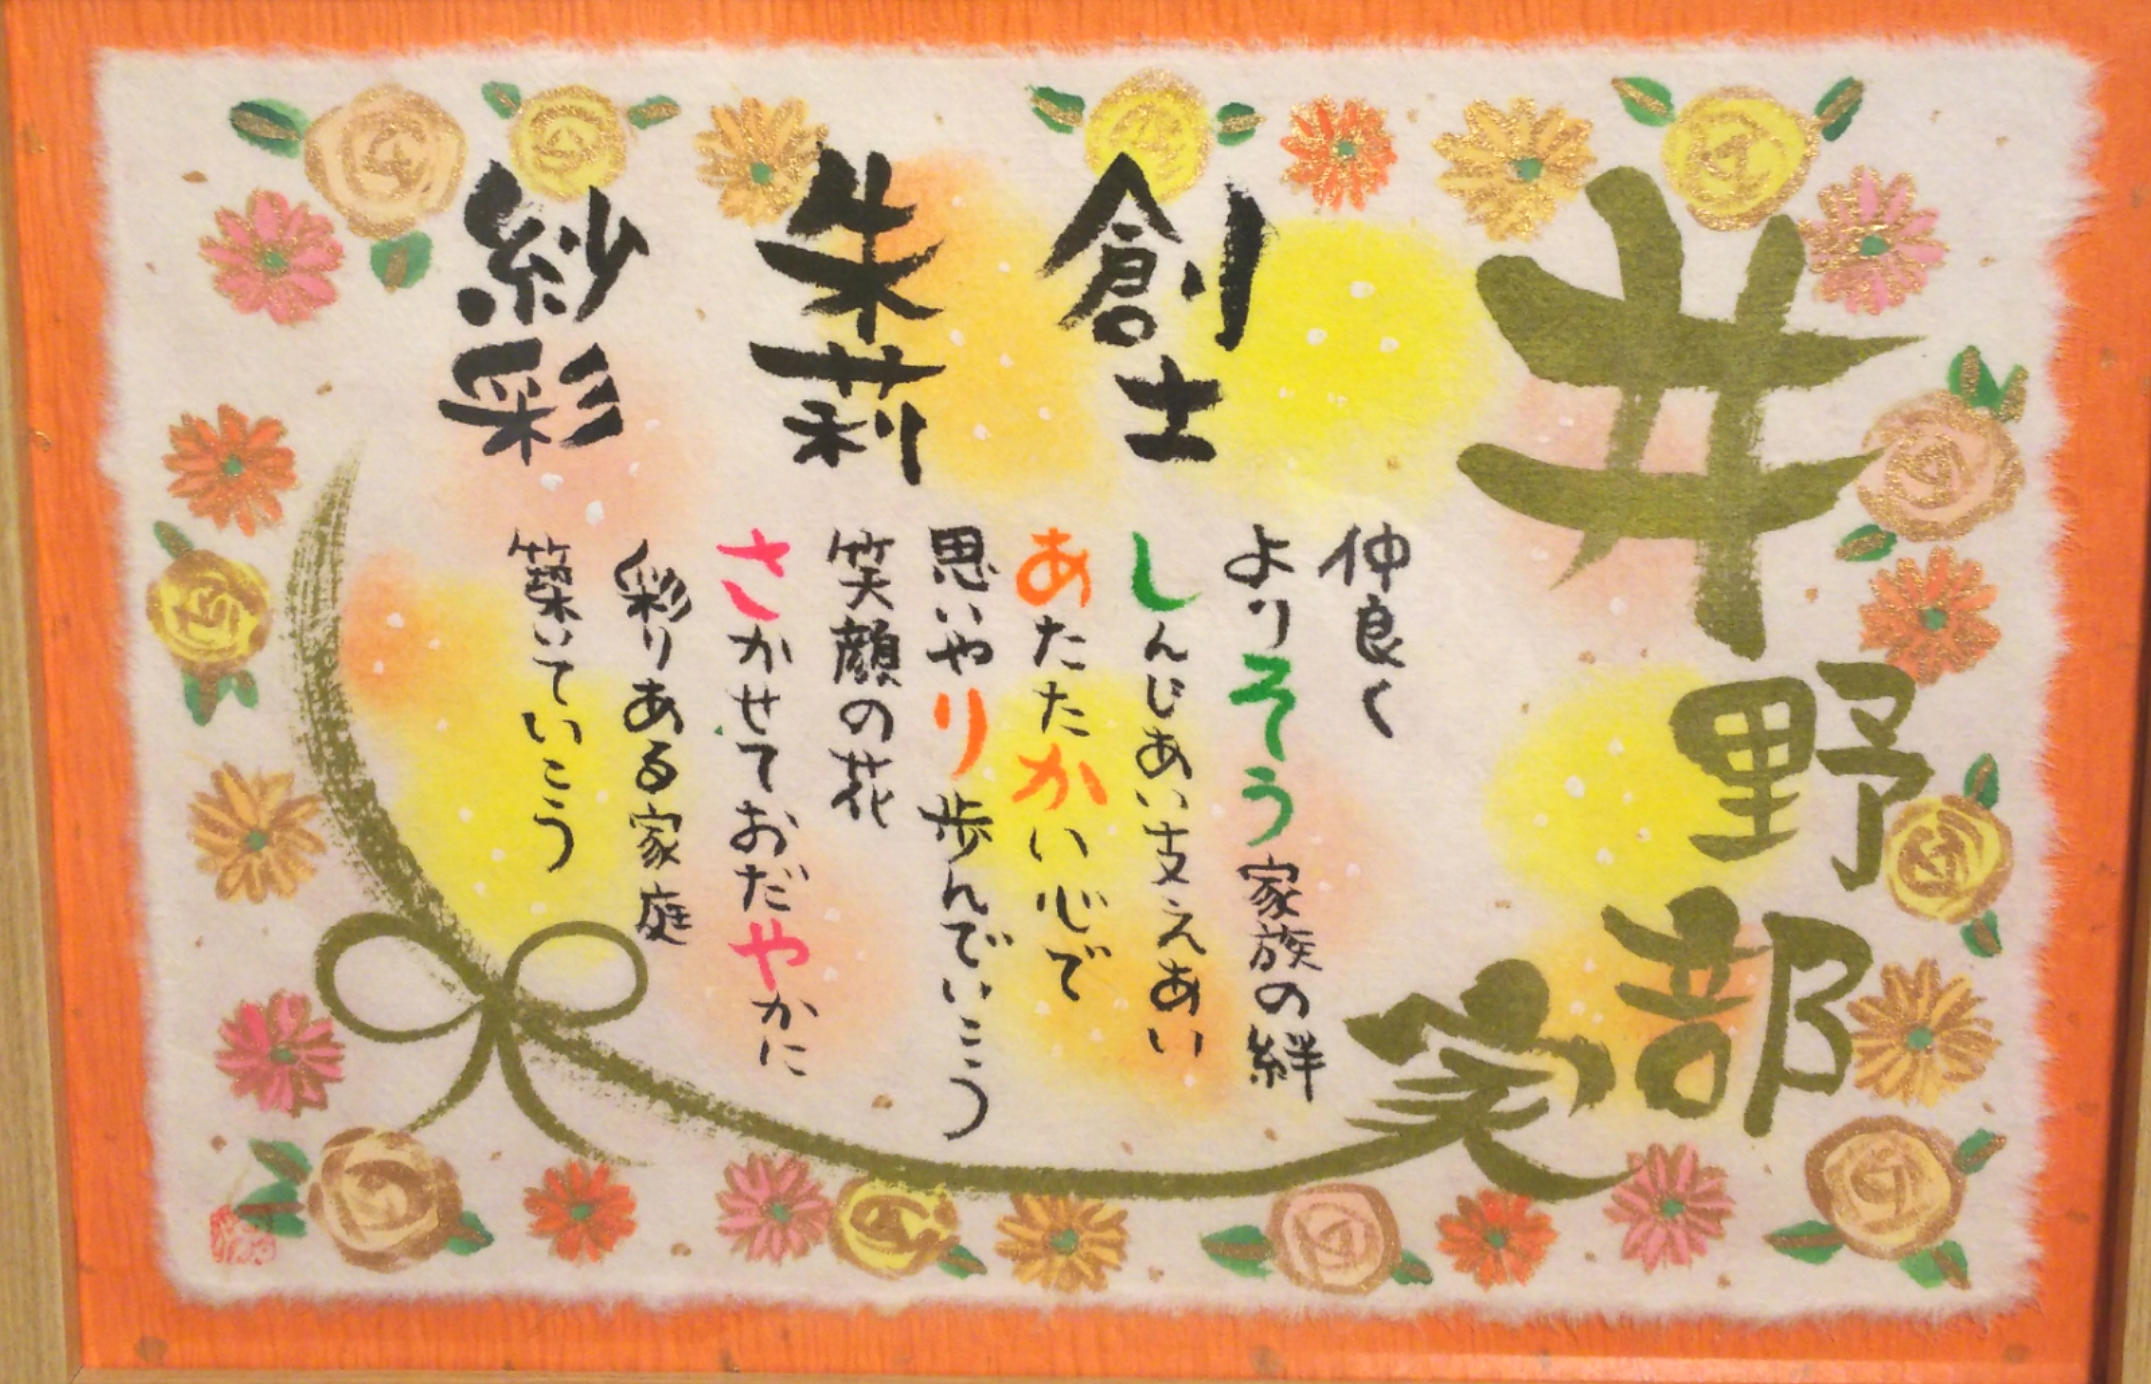 井野部家
創士
朱莉
紗彩
仲良く
よりそう家族の絆
しんじあい支えあい
あたたかい心で
思いやり歩んでいこう
笑顔の花
さかせておだやかに
彩りある家庭
築いていこう